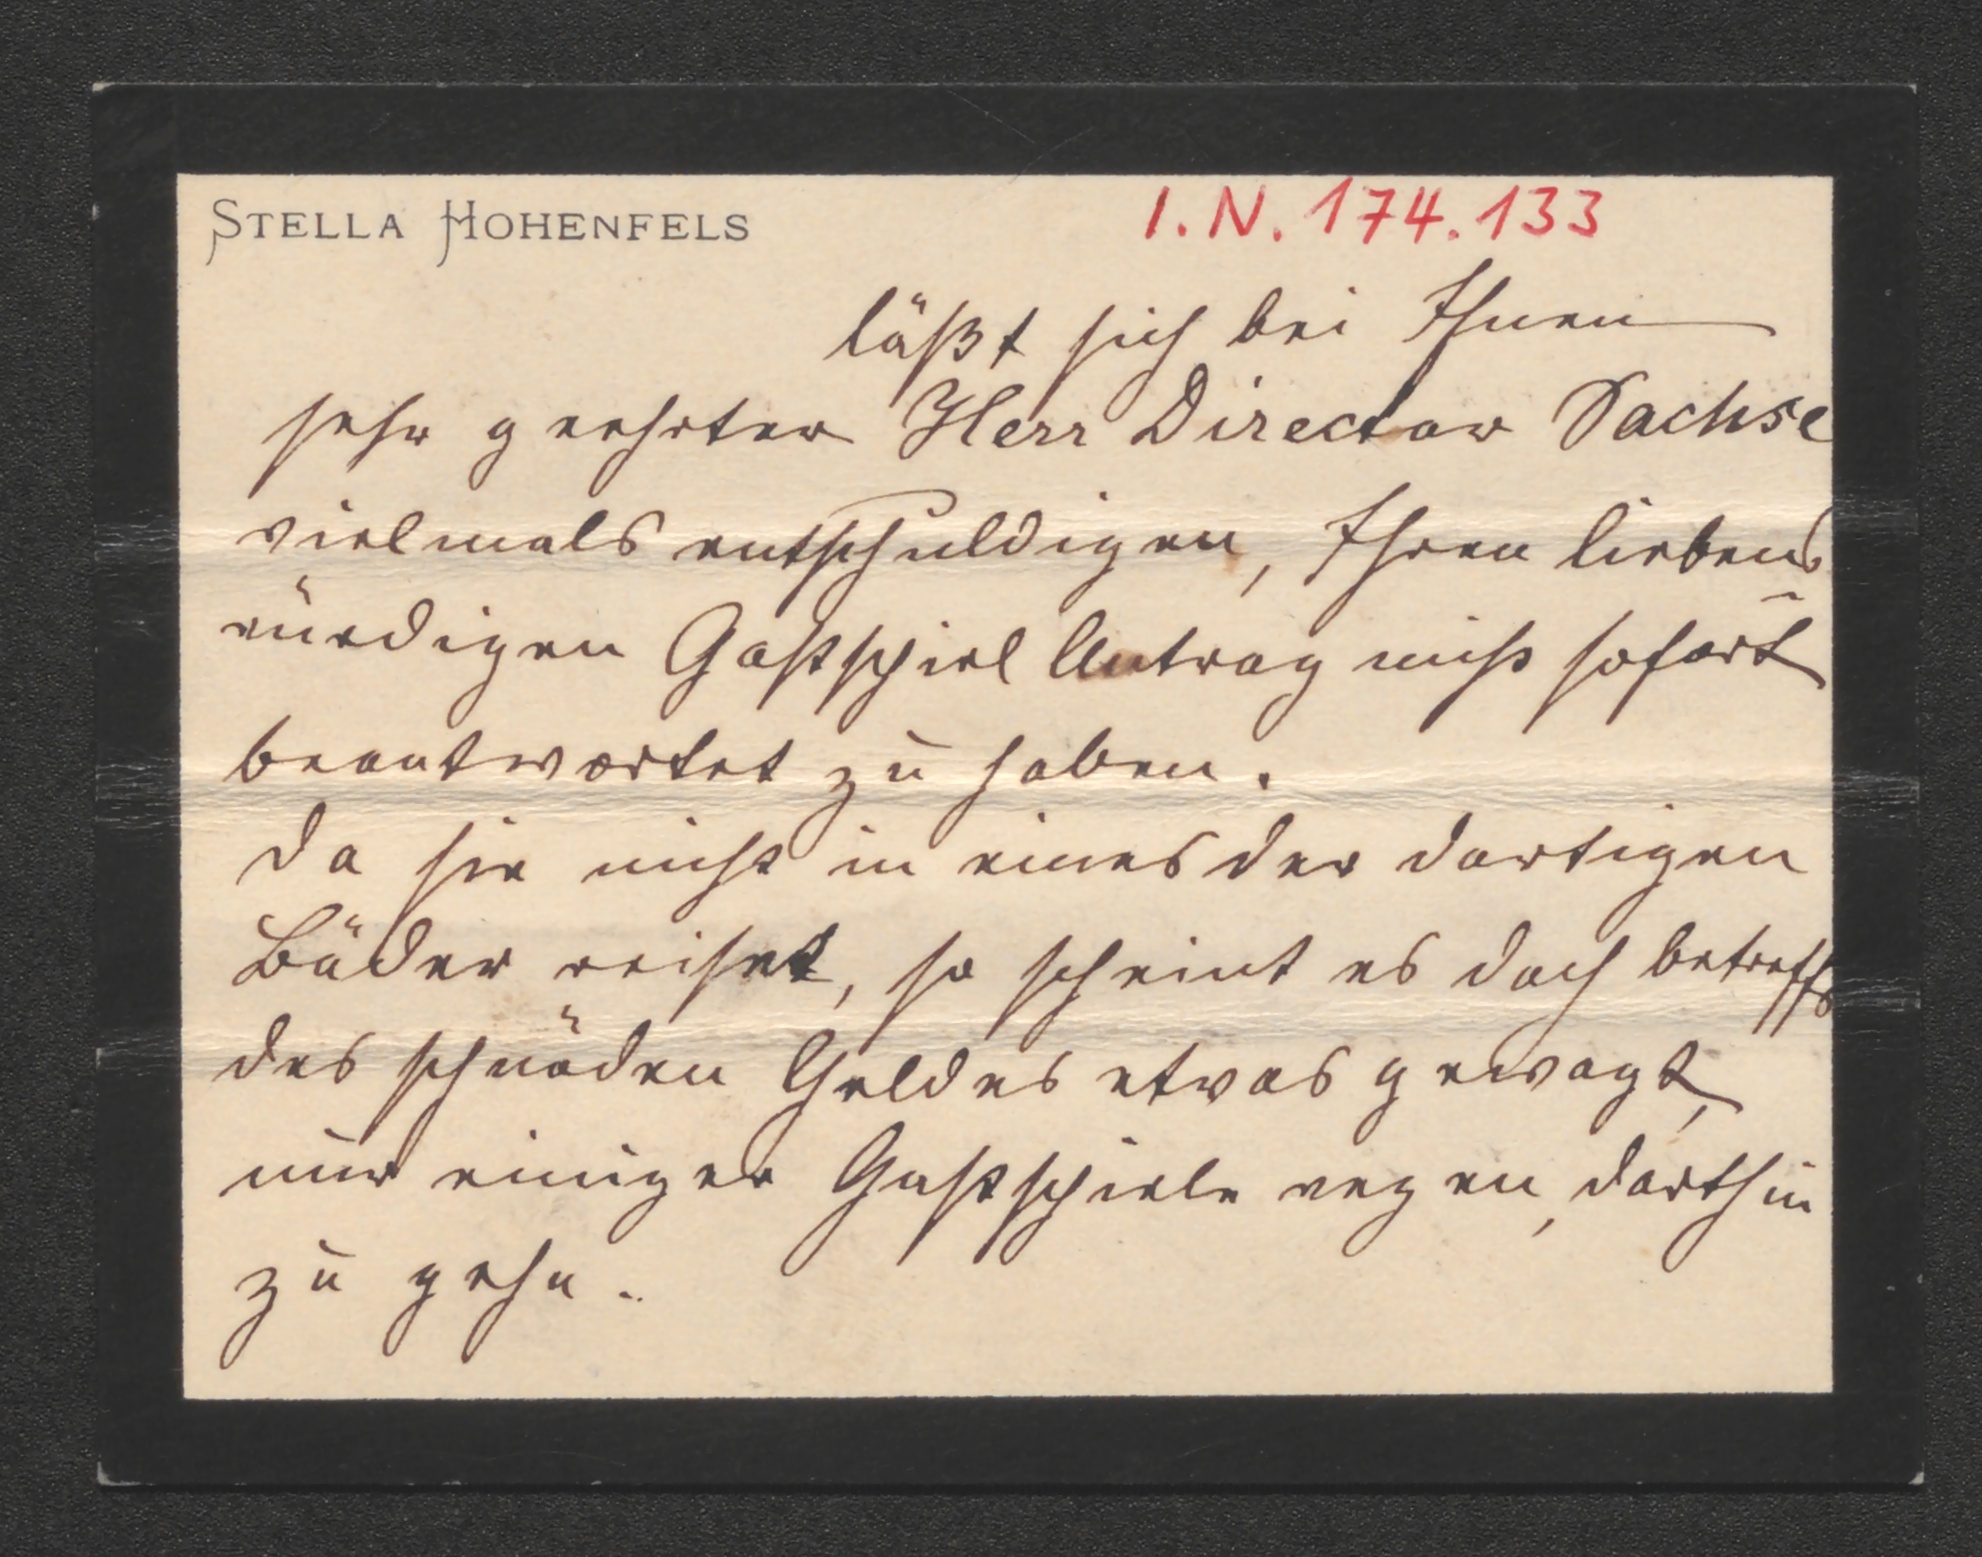 STELLA HOHENFELS
I.N. 174.133
läßt sich bei Ihnen
sehr geehrter Herr Director Sachse
vielmals entschuldigen, Ihren liebens
würdigen Gastspiel Antrag nicht sofort
beantwortet zu haben.
Da sie nicht in eines der dortigen
Bäder reiset, so scheint es doch betreffs
des schnöden Geldes etwas gewagt,
nur einiger Gastspiele wegen, dorthin
zu gehn.